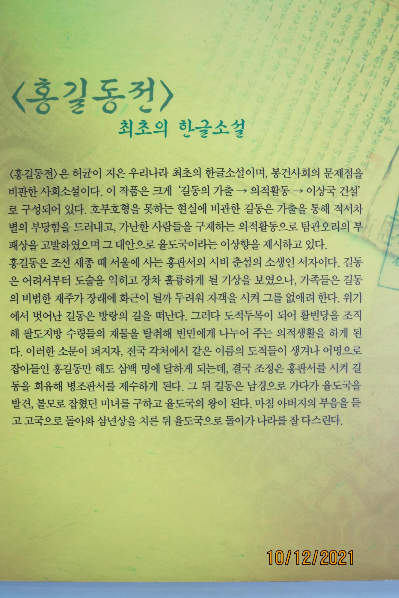 <홍길동전>
최초의 한글소설
<홍길동전>은 허균이 지은 우리나라 최초의 한글소설이며, 봉건사회의 문제점을
비판한 사회소설이다. 이 작품은 크게 '길동의 가출 → 의적활동 → 이상국 건설'
로 구성되어 있다. 호부호형을 못하는 현실에 비관한 길동은 가출을 통해 적서차
별의 부당함을 드러내고, 가난한 사람들을 구제하는 의적활동으로 탐관오리의 부
패상을 고발하였으며 그 대안으로 율도국이라는 이상향을 제시하고 있다.
홍길동은 조선 세종 때 서울에 사는 홍판서의 시비 춘섬의 소생인 서자이다. 길동
은 어려서부터 도술을 익히고 장차 훌륭하게 될 기상을 보였으나, 가족들은 길동
의 비범한 재주가 장래에 화근이 될까 두려워 자객을 시켜 그를 없애려 한다. 위기
에서 벗어난 길동은 방랑의 길을 떠난다. 그러다 도적두목이 되어 활빈당을 조직
해 팔도지방 수령들의 재물을 탈취해 빈민에게 나누어 주는 의적생활을 하게 된
다. 이러한 소문이 퍼지자, 전국 각처에서 같은 이름의 도적들이 생겨나 어명으로
잡아들인 홍길동만 해도 삼백 명에 달하게 되는데, 결국 조정은 홍판서를 시켜 길
동을 회유해 병조판서를 제수하게 된다. 그 뒤 길동은 남경으로 가다가 율도국을
발견, 볼모로 잡혔던 미녀를 구하고 율도국의 왕이 된다. 마침 아버지의 부음을 듣
고 고국으로 돌아와 삼년상을 치른 뒤 율도국으로 돌아가 나라를 잘 다스린다.
10/12/2021